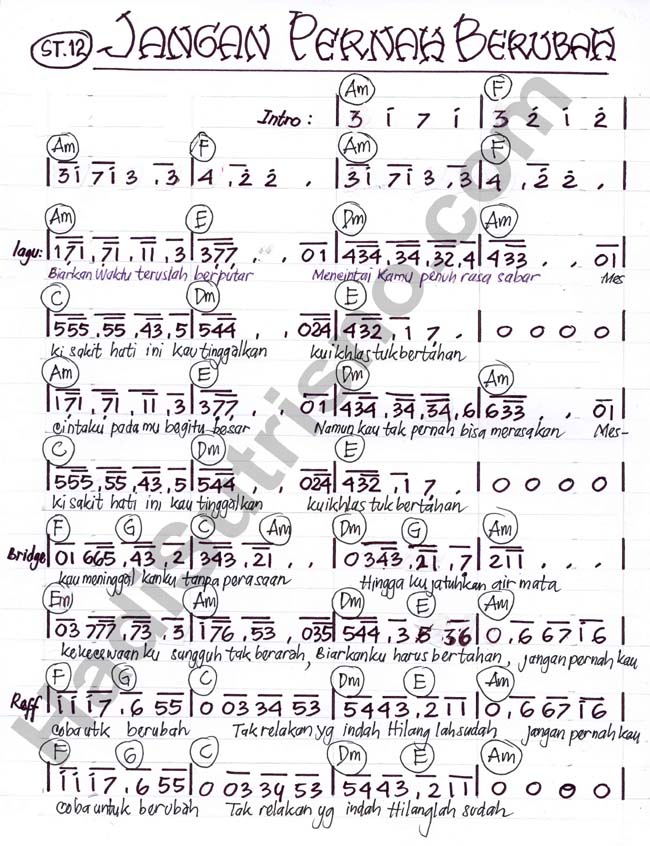 ST.12 JANGAN PERNAH BERUBAH
Am F
Intro : | 3 i 7 i | 3 2 i 2 |
Am F Am F
| 3i 7i3 .3 | 4 .2 2 . | 3i 7i3 .3 | 4 .2 2 . |
Am E Dm Am
lagu: | 171 .71 .11 .3 | 377 . . 01 | 434 .34 .32 .4 | 433 . . 01 |
Biarkan Waktu teruslah berputar Mencintai Kamu penuh rasa sabar Mes
C Dm E
| 555 .55 .43 .5 | 544 . . 024 | 432 .1 7 . | 0 0 0 0 |
ki sakit hati ini kau tinggalkan kuikhlas tuk bertahan
Am E Dm Am
| 171 .71 .11 .3 | 377 . . 01 | 434 .34 .34 .6 | 633 . . 01 |
Cintaku pada mu bagitu besar Namun kau tak pernah bisa merasakan Mes-
C Dm E
| 555 .55 .43 .5 | 544 . . 024 | 432 .1 7 . | 0 0 0 0 |
ki sakit hati ini kau tinggalkan kuikhlas tuk bertahan
F G C Am Dm G Am
Bridge | 01 665 .43 .2 | 343 .21 . . | 0 343 .21 .7 | 211 . . . |
kau meninggal kanku tanpa perasaan Hingga ku jatuhkan air mata
Em Am Dm E Am
| 03 777 .73 .3 | 176 .53 . 035 | 544 .3 5 36 | 0 .6 67 16 |
kekecewaan ku sungguh tak berarah, Biarkanku harus bertahan, jangan pernah kau
F G C Dm E Am
Reff | i i i7 .6 55 | 0 03 34 53 | 5443 .2 11 | 0 .6 67 16 |
Coba utk berubah Tak relakan yg indah Hilang lah sudah jangan pernah kau
F G C Dm E Am
| i i i7 .6 55 | 0 03 34 53 | 5443 .2 11 | 0 0 0 0 |
coba untuk berubah Tak relakan yg indah Hilanglah sudah
hadisutrisno.com